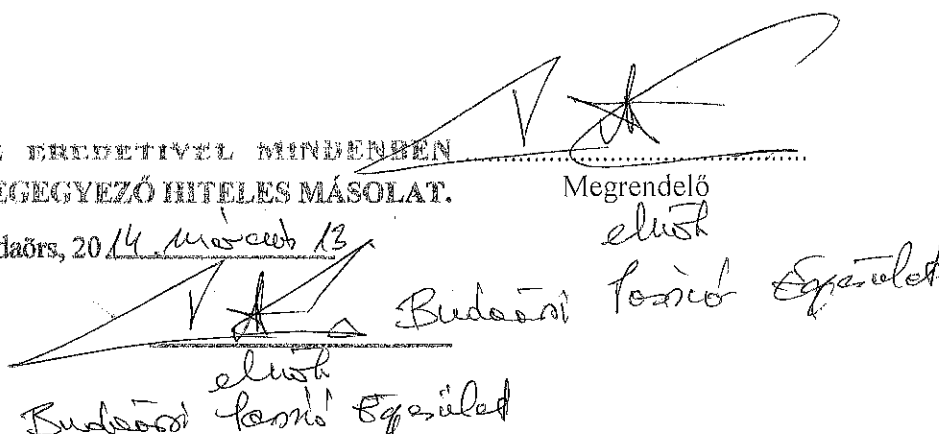 EREDETIVEL MINDENBEN
EGEGYEZŐ HITELES MÁSOLAT.
daörs, 2014. március 13
Megrendelő
elnök
Budaörsi Passió Egyesület
elnök
Budaörsi Passió Egyesület